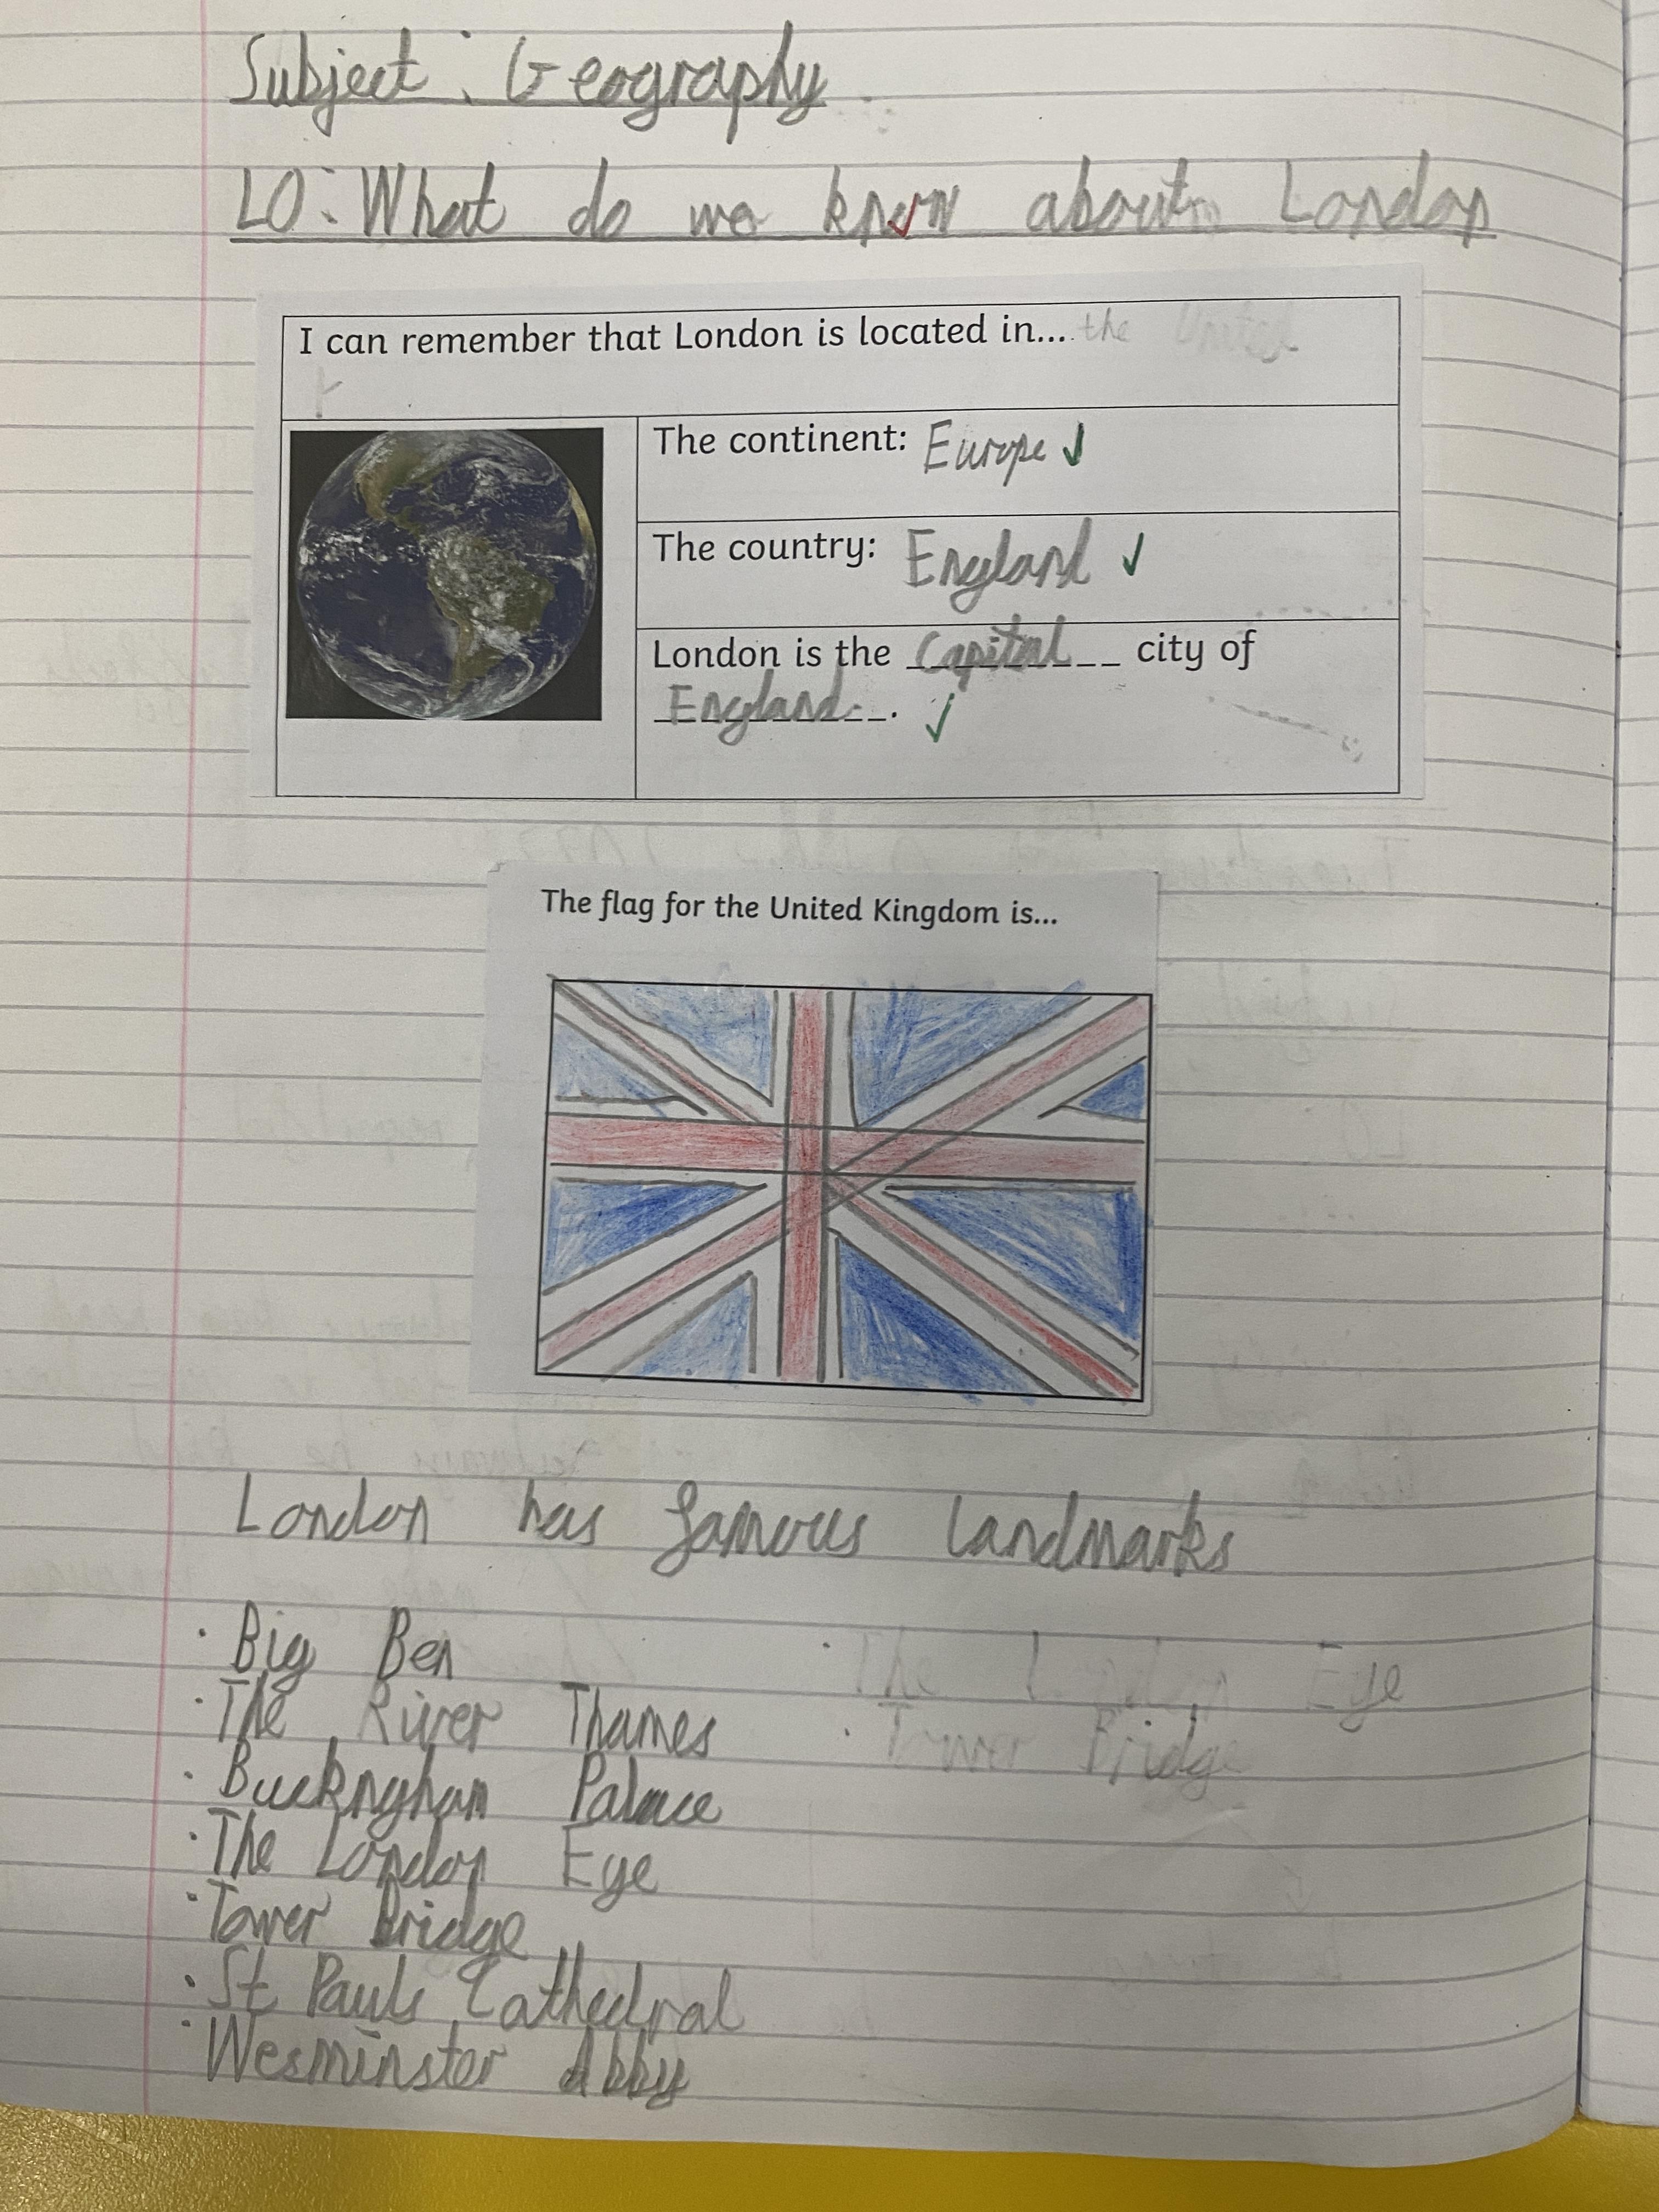 Subject: Geography
LO: What do we know about London
I can remember that London is located in... the United
The continent: Europe
The country: England
London is the Capital city of
England.
The flag for the United Kingdom is...
London has famous landmarks
· Big Ben
· The River Thames
· Buckngham Palace
· The London Eye
· Tower Bridge
· St Pauls Cathedral
· Wesminster Abby
· The London Eye
· Tower Bridge